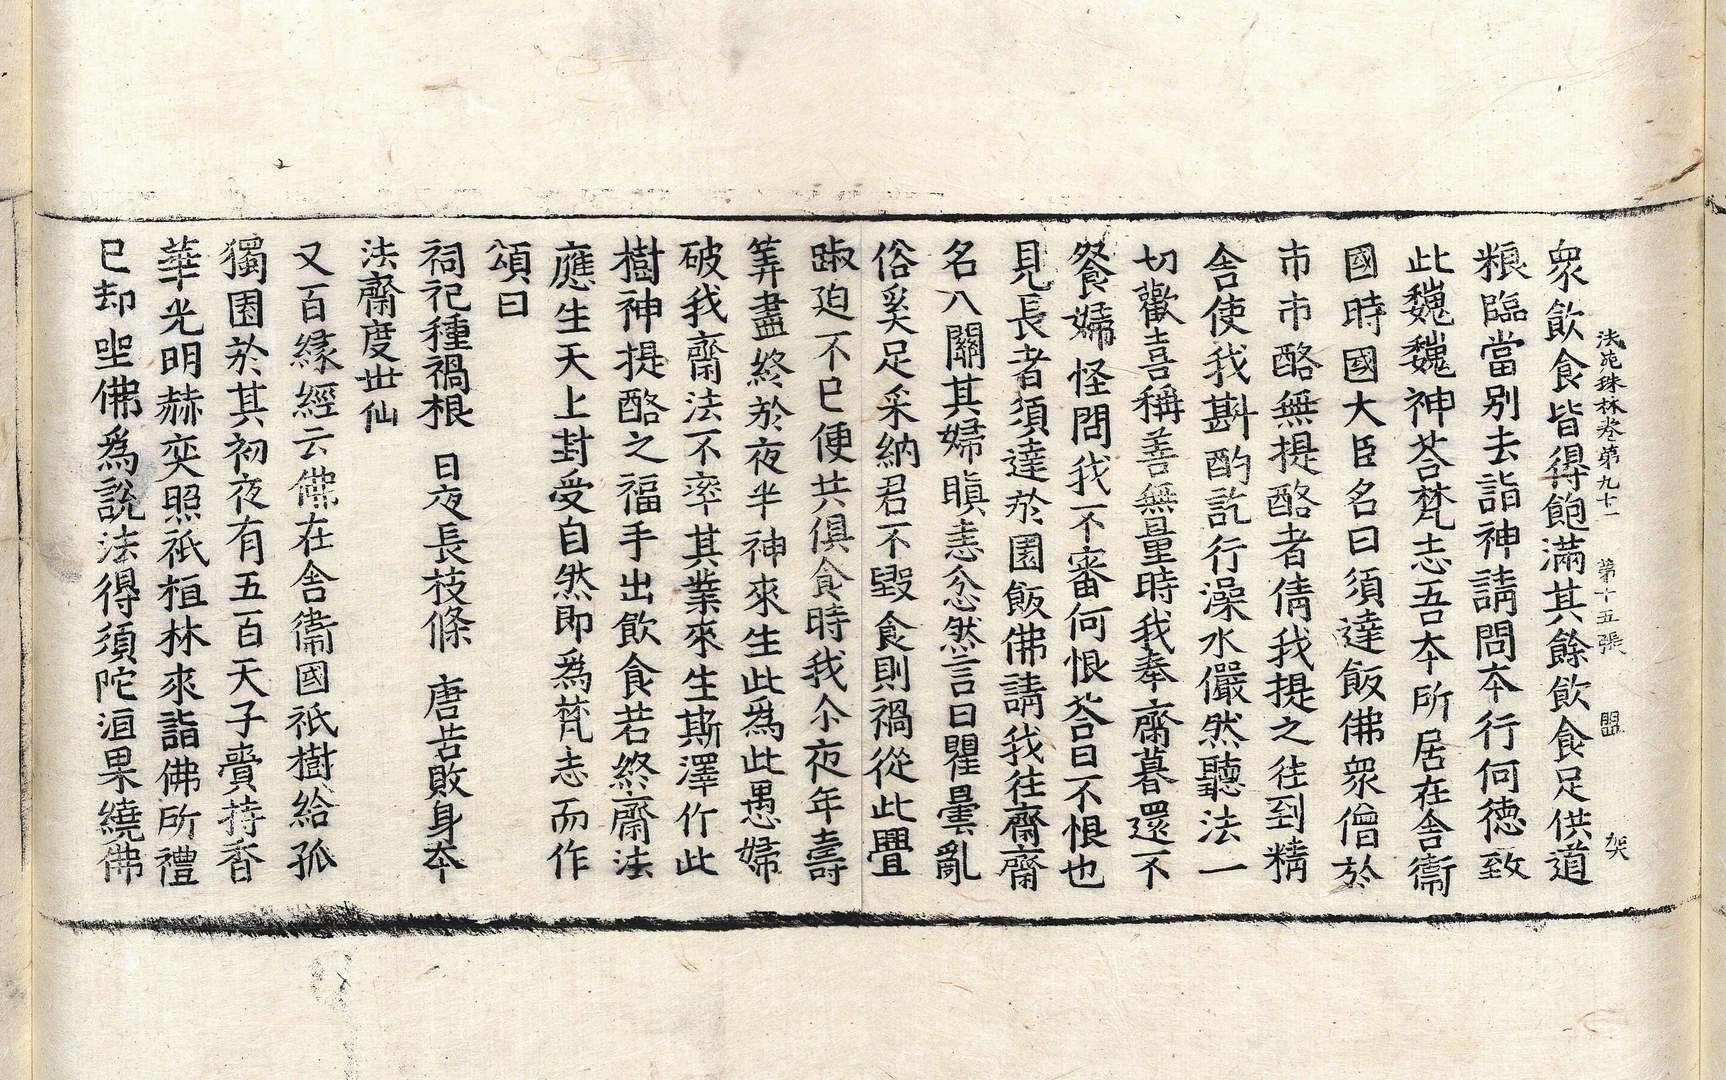 法苑珠林卷第九十一 第十五張 盟 架
衆飲食皆得飽滿其餘飲食足供道
粮臨當別去詣神請問本行何德致
此巍巍神荅梵志吾本所居在舍衞
國時國大臣名曰須達飯佛衆僧於
市市酪無提酪者倩我提之往到精
舍使我斟酌訖行澡水儼然聽法一
切歡喜稱善無量時我奉齋暮還不
飱婦怪問我不審何恨荅曰不恨也
見長者須達於園飯佛請我往齋齋
名八關其婦瞋恚忿然言曰瞿曇亂
俗奚足采納君不毀食則禍從此疊
踧迫不已便共俱食時我尒夜年壽
筭盡終於夜半神來生此爲此愚婦
破我齋法不率其業來生斯澤作此
樹神提酪之福手出飲食若終齋法
應生天上封受自然即爲梵志而作
頌曰
祠祀種禍根 日夜長枝條 唐苦敗身本
法齋度世仙
又百緣經云佛在舍衞國祇樹給孤
獨園於其初夜有五百天子賷持香
華光明赫奕照祇桓林來詣佛所禮
已却坐佛爲說法得須陀洹果繞佛